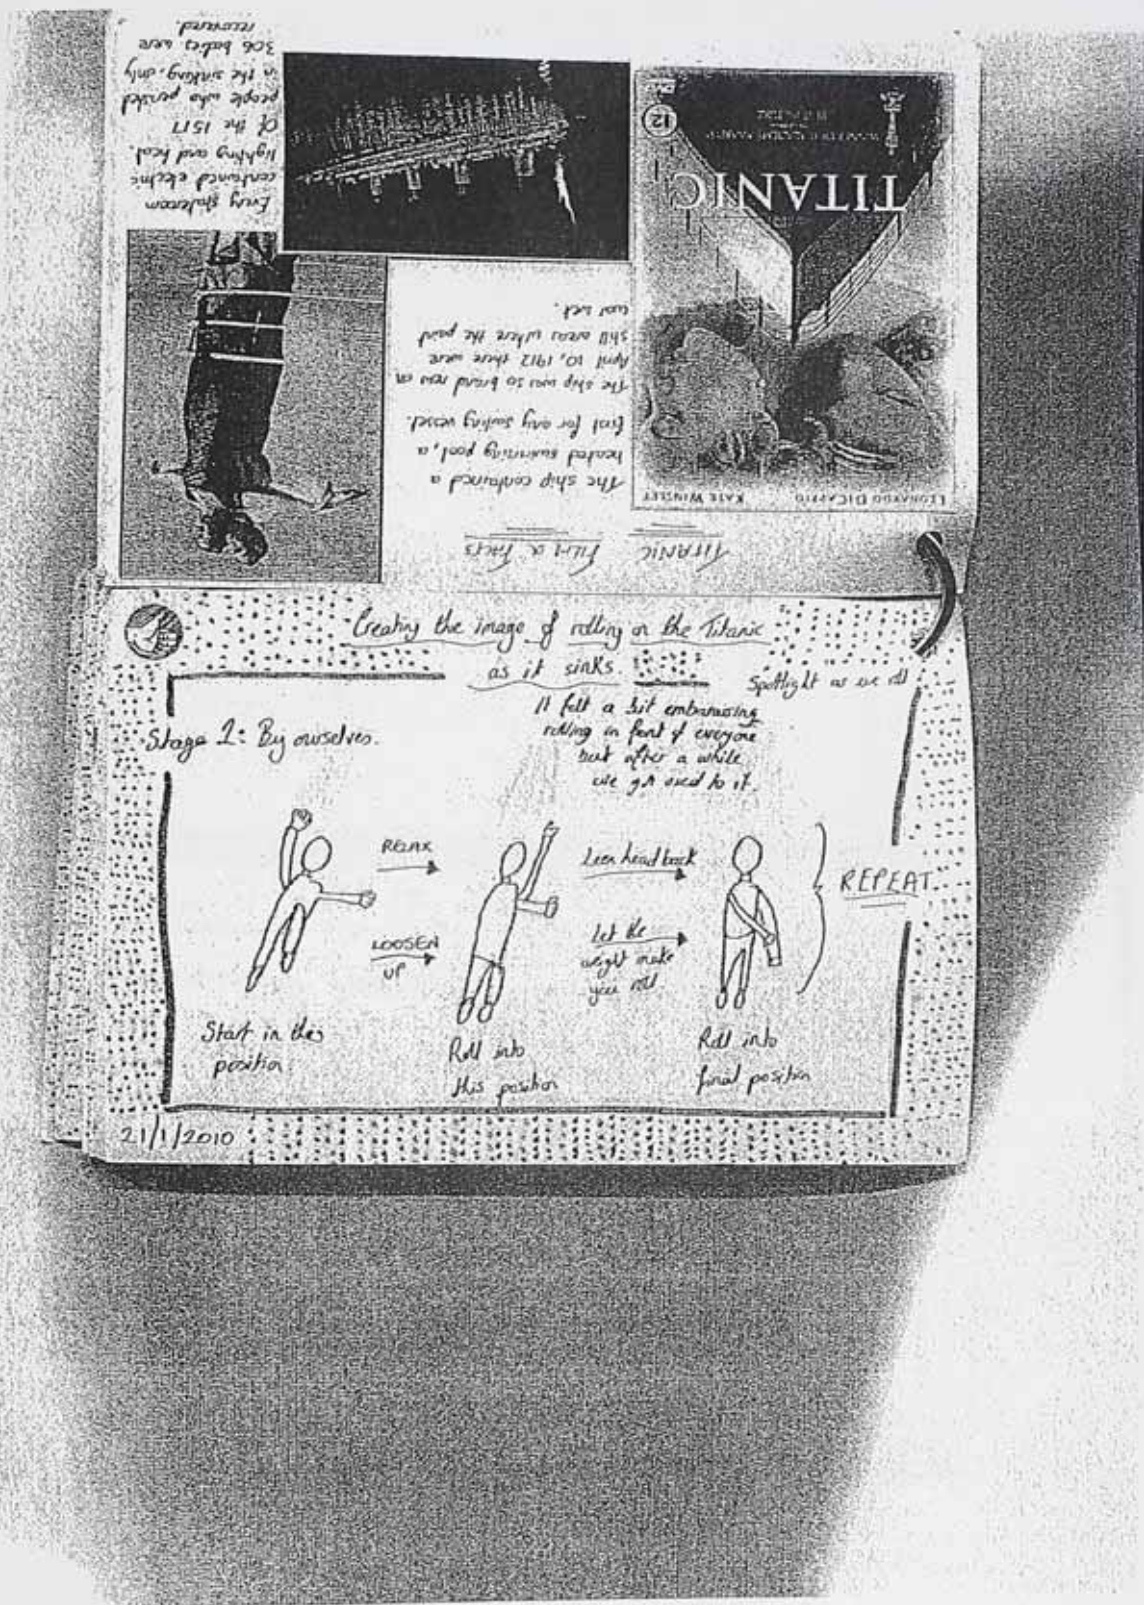 TITANIC FILM & FACTS
LEONARDO DICAPRIO KATE WINSLET
TITANIC
12
DVD
The ship contained a
heated swimming pool, a
first for any sailing vessel.
The ship was so brand new on
April 10, 1912 there were
still areas where the paint
was wet.
Every stateroom
contained electric
lighting and heat.
Of the 1517
people who perished
in the sinking, only
306 bodies were
recovered.
Creating the image of rolling on the Titanic
as it sinks.
Spotlight as we roll
It felt a bit embarrassing
rolling in front of everyone
but after a while
we got used to it.
Stage 1: By ourselves.
RELAX
LOOSEN
UP
Lean head back
Let the
weight make
you roll
REPEAT
Start in this
position
Roll into
this position
Roll into
final position
21/1/2010